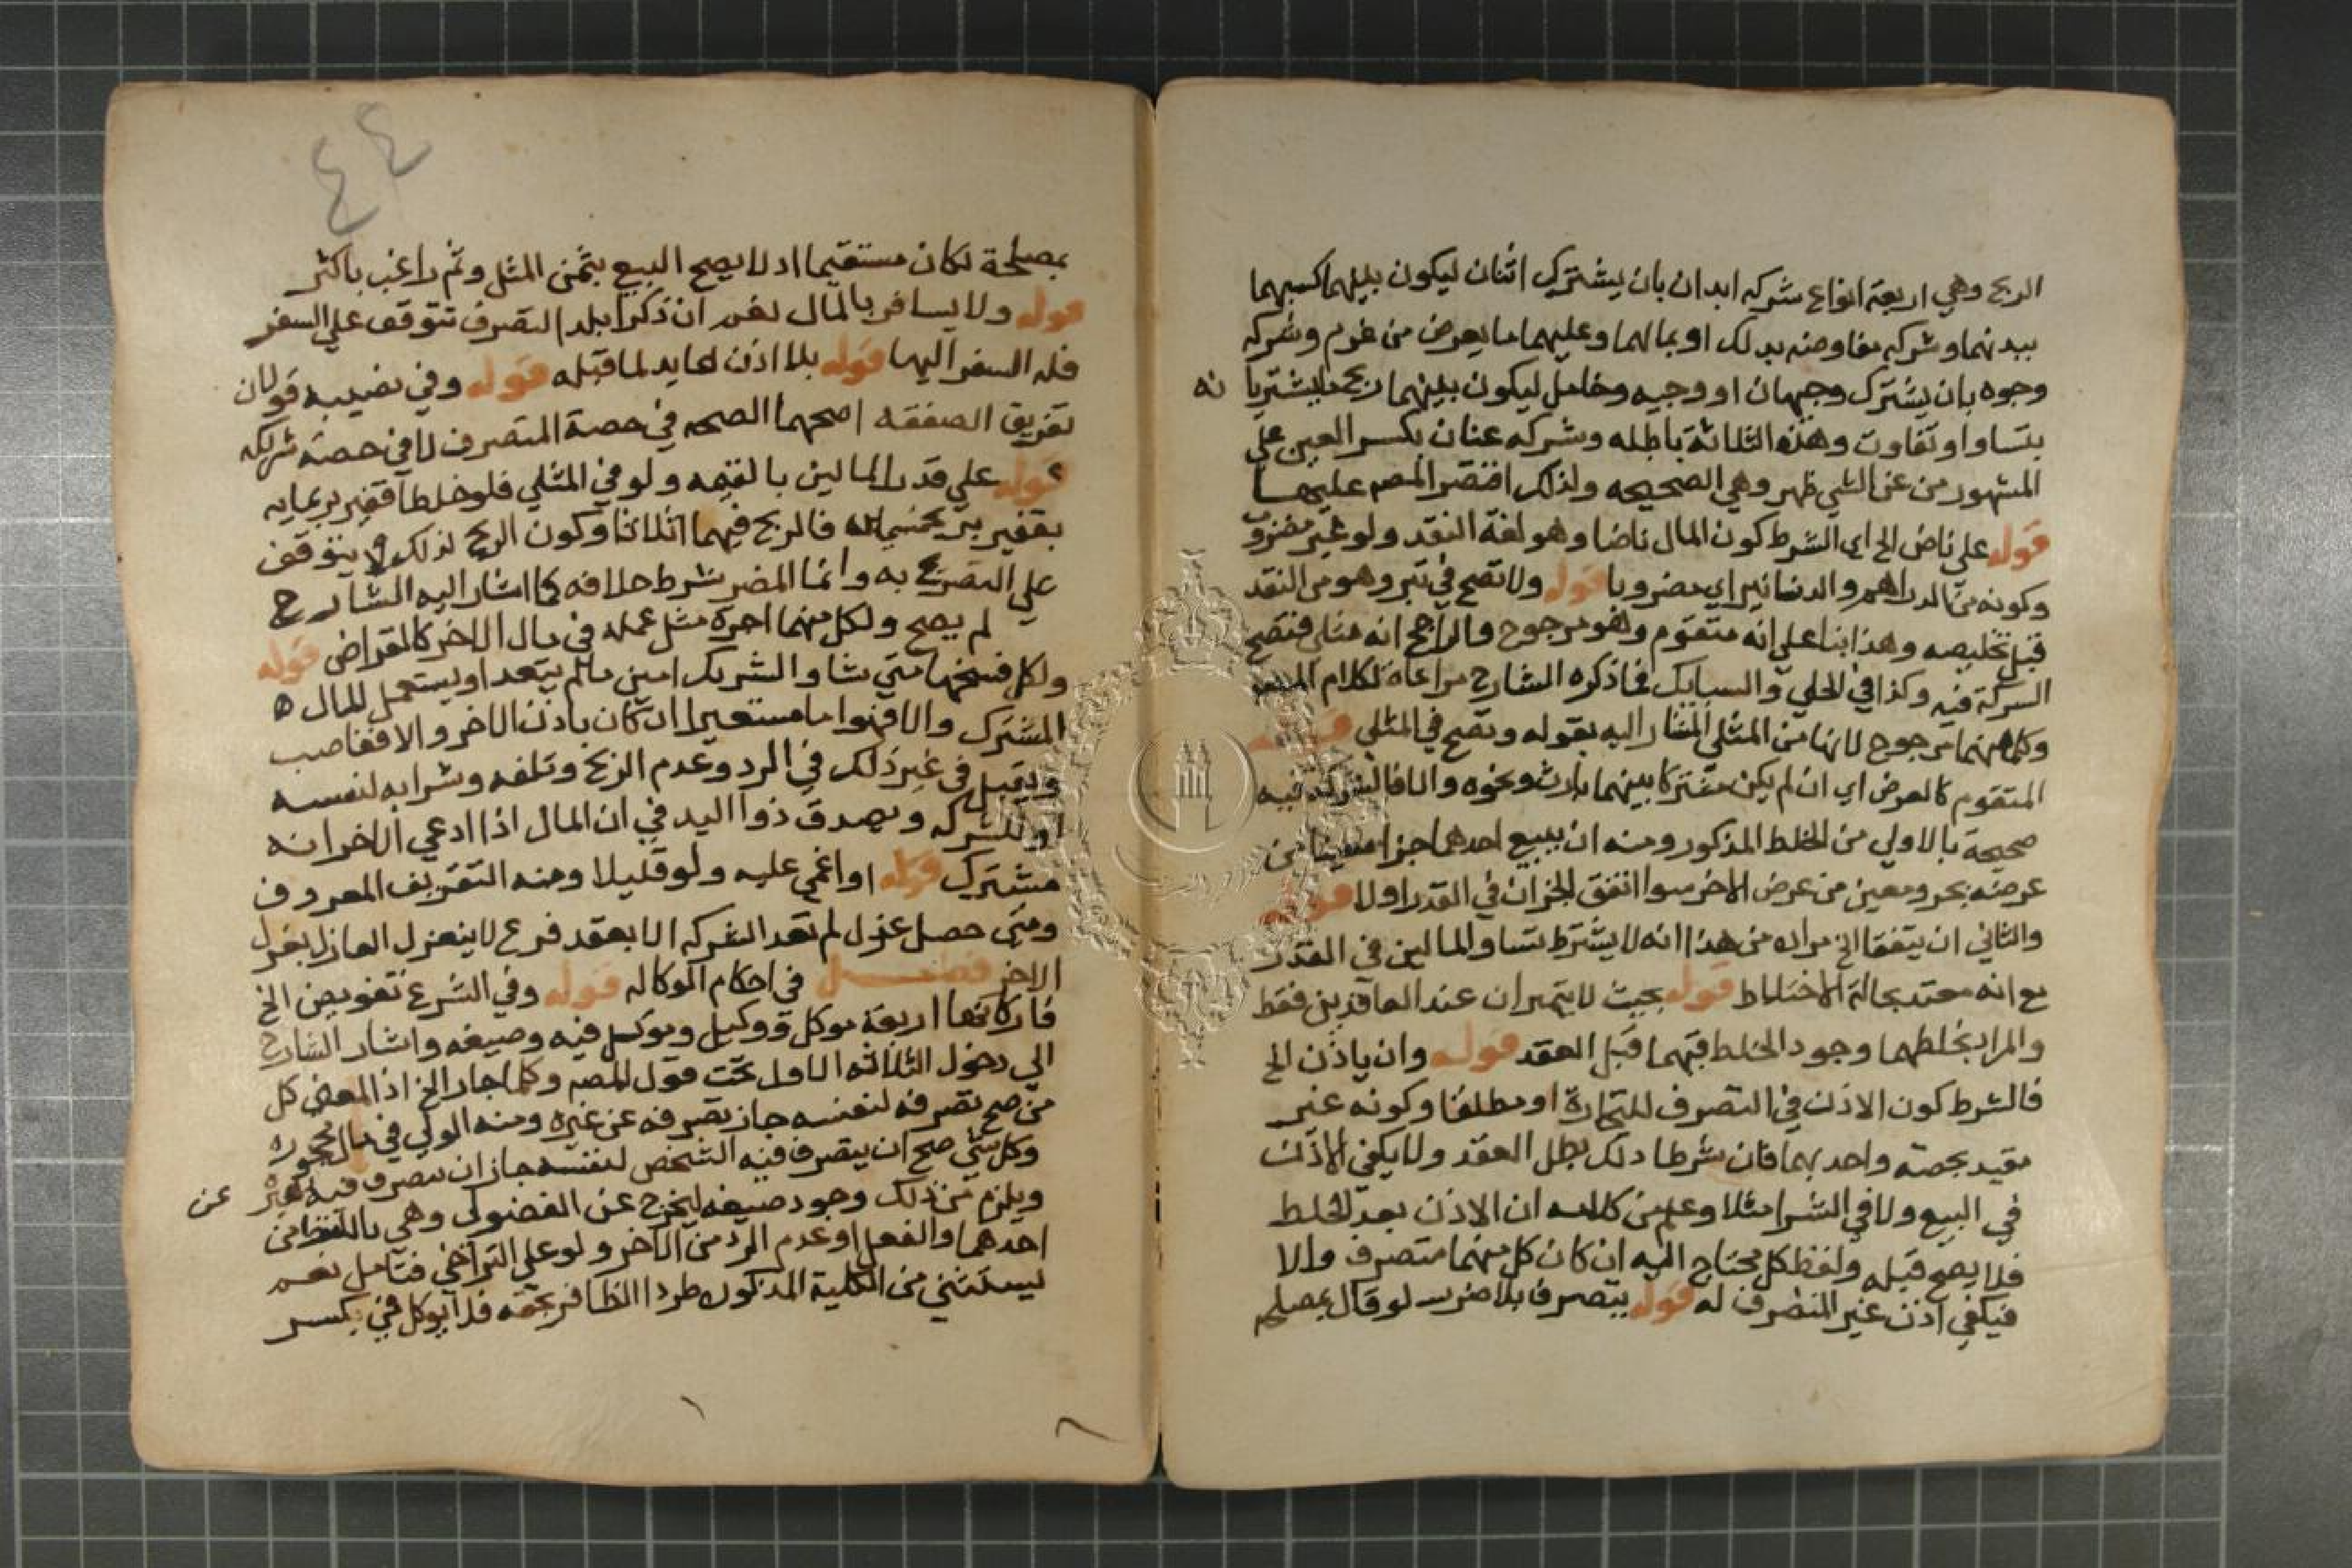 الربح وهي اربعة انواع شركه ابدان بان يشترك اثنان ليكون بينهما كسبهما
ببدنهما وشركه مفاوضه بدلك او بمالهما وعليهما ما يعرض من غرم وشركه
وجوه بان يشترك وجيهان او وجيه وخامل ليكون بينهما ربح ما يشتريا نه
بتساو او تفاوت وهذه الثلاثة باطله وشركه عنان بكسر العين علي
المشهور من عن الشي ظهر وهي الصحيحه ولذلك اقتصر المصم عليها
قوله علي ناض الخ اي الشرط كون المال ناضا وهو لغة النقد ولو غير مضروب
وكونه من الدراهم والدنانير اي مضروبا قوله ولا تصح في تبر وهو من النقد
قبل تخليصه وهذا بنا علي انه متقوم وهو مرجوح والراجح انه مثلي فتصح
الشركة فيه وكذا في الحلي والسبايك فما ذكره الشارح مراعاة لكلام المصم
وكلاهما مرجوح لانها من المثلي المشار اليه بقوله وتصح في المثلي قوله
المتقوم كالعرض اي ان لم يكن مشتركا بينهما بارث ونحوه والا فالشركة فيه
صحيحة بالاولي من الخلط المذكور ومنه ان يبيع احدهما جزا معينا من
عرضه بجزو معين من عرض الاخر سوا اتفق الجزان في القدر او لا قوله
والثاني ان يتفقا الخ مراده من هذا انه لا يشترط تساو المالين في القدر
مع انه معتد بحالة الاختلاط قوله بحيث لا يتميزان عند العاقدين فقط
والمراد بخلطهما وجود الخلط فيهما قبل العقد قوله وان ياذن الخ
فالشرط كون الاذن في التصرف للتجارة او مطلقا وكونه غير
مقيد بحصة واحد بهما فان شرطا ذلك بطل العقد ولا يكفي الاذن
في البيع ولا في الشرا مثلا وعلم من كلامه ان الاذن بعد الخلط
فلا يصح قبله ولفظ كل محتاج اليه ان كان كل منهما متصرف والا
فيكفي اذن غير المتصرف له قوله يتصرف بلا ضرر لو قال بمصلحه
٤٤
بمصلحة لكان مستقيما اد لا يصح البيع بثمن المثل وثم راغب باكثر
قوله ولا يسافر بالمال نعم ان ذكرا بلد التصرف تتوقف علي السفر
فله السفر اليها قوله بلا اذن عايد لما قبله قوله وفي نصيبه قولان
تفريق الصفقه اصحهما الصحه في حصة المتصرف لا في حصة شريكه
قوله علي قدر المالين بالقيمه ولو في المثلي فلو خلطا قفيز بر بمايه
بقفيز بر بخمسمائه فالربح فيهما اثلاثا وكون الربح لذلك لا يتوقف
علي التصريح به وانما المضر شرط خلافه كما اشار اليه الشارح
لم يصح ولكل منهما اجرة مثل عمله في مال الاخر كالقراض قوله
ولكل فسخها متي شا والشريك امين ما لم يتعد او يستعمل المال ه
المشترك والا فهو اما مستعيرا ان كان باذن الاخر والا فغاصب
ويقبل في غير ذلك في الرد وعدم الربح وتلفه وشرايه لنفسه
او للشركه ويصدق ذوا اليد في ان المال اذا ادعي الاخر انه
مشترك قوله او اغمي عليه ولو قليلا ومنه التقريف المعروف
ومتي حصل عزل لم تعد الشركه الا بعقد فرع لا ينعزل العازل بعزل
الاخر فصل في احكام الوكاله قوله وفي الشرع تفويض الخ
فاركانها اربعة موكل ووكيل وموكل فيه وصيغه واشار الشارح
الي دخول الثلاثه الاول تحت قول المصم وكلما جاز الخ اذ المعني كل
من صح تصرفه لنفسه جاز تصرفه عن غيره ومنه الولي في مال محجوره
وكل شي صح ان يتصرف فيه الشخص لنفسه جاز ان يتصرف فيه لغيره عن
ويلزم من ذلك وجود صيغه ليخرج عن الفضولي وهي باللفظ من
احدهما والفعل او عدم الرد من الاخر ولو علي التراخي فتامل نعم
يستثني من الكلية المذكوره طردا الظافر بحقه فلا يوكل في كسر